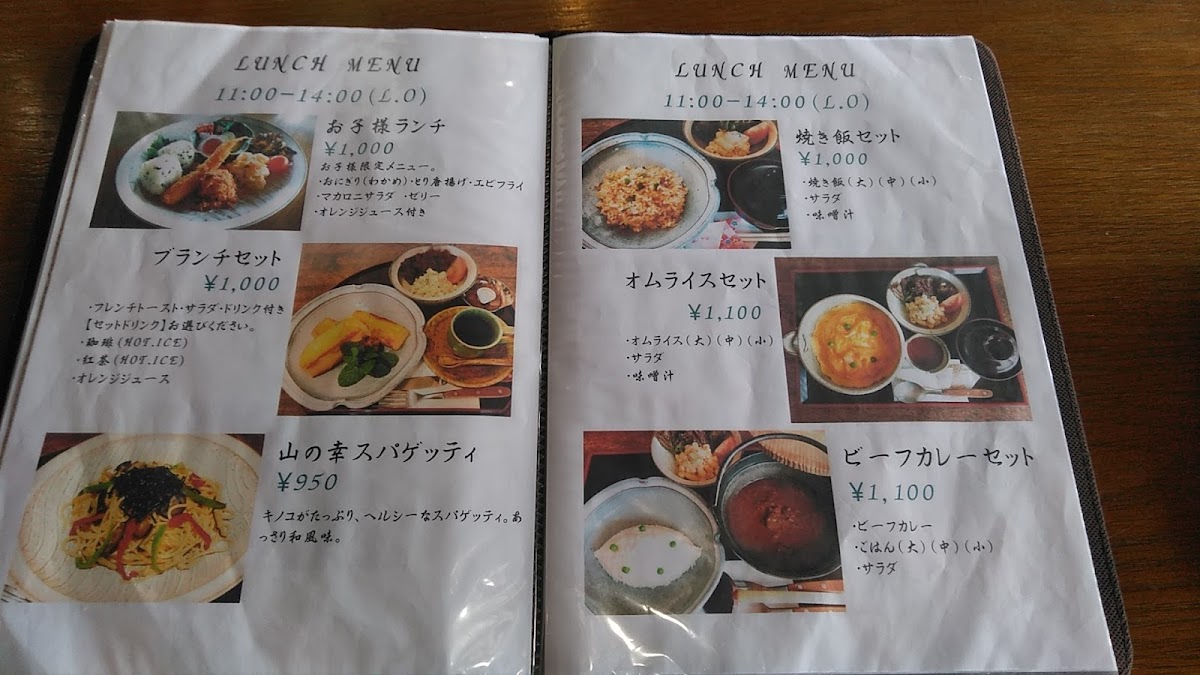 LUNCH MENU
11:00-14:00(L.O)
お子様ランチ
¥1,000
お子様限定メニュー。
・おにぎり(わかめ)・とり唐揚げ・エビフライ
・マカロニサラダ ・ゼリー
・オレンジジュース付き
ブランチセット
¥1,000
・フレンチトースト・サラダ・ドリンク付き
【セットドリンク】お選びください。
・珈琲(HOT.ICE)
・紅茶(HOT.ICE)
・オレンジジュース
山の幸スパゲッティ
¥950
キノコがたっぷり、ヘルシーなスパゲッティ。あ
っさり和風味。
LUNCH MENU
11:00-14:00(L.O)
焼き飯セット
¥1,000
・焼き飯(大)(中)(小)
・サラダ
・味噌汁
オムライスセット
¥1,100
・オムライス(大)(中)(小)
・サラダ
・味噌汁
ビーフカレーセット
¥1,100
・ビーフカレー
・ごはん(大)(中)(小)
・サラダ